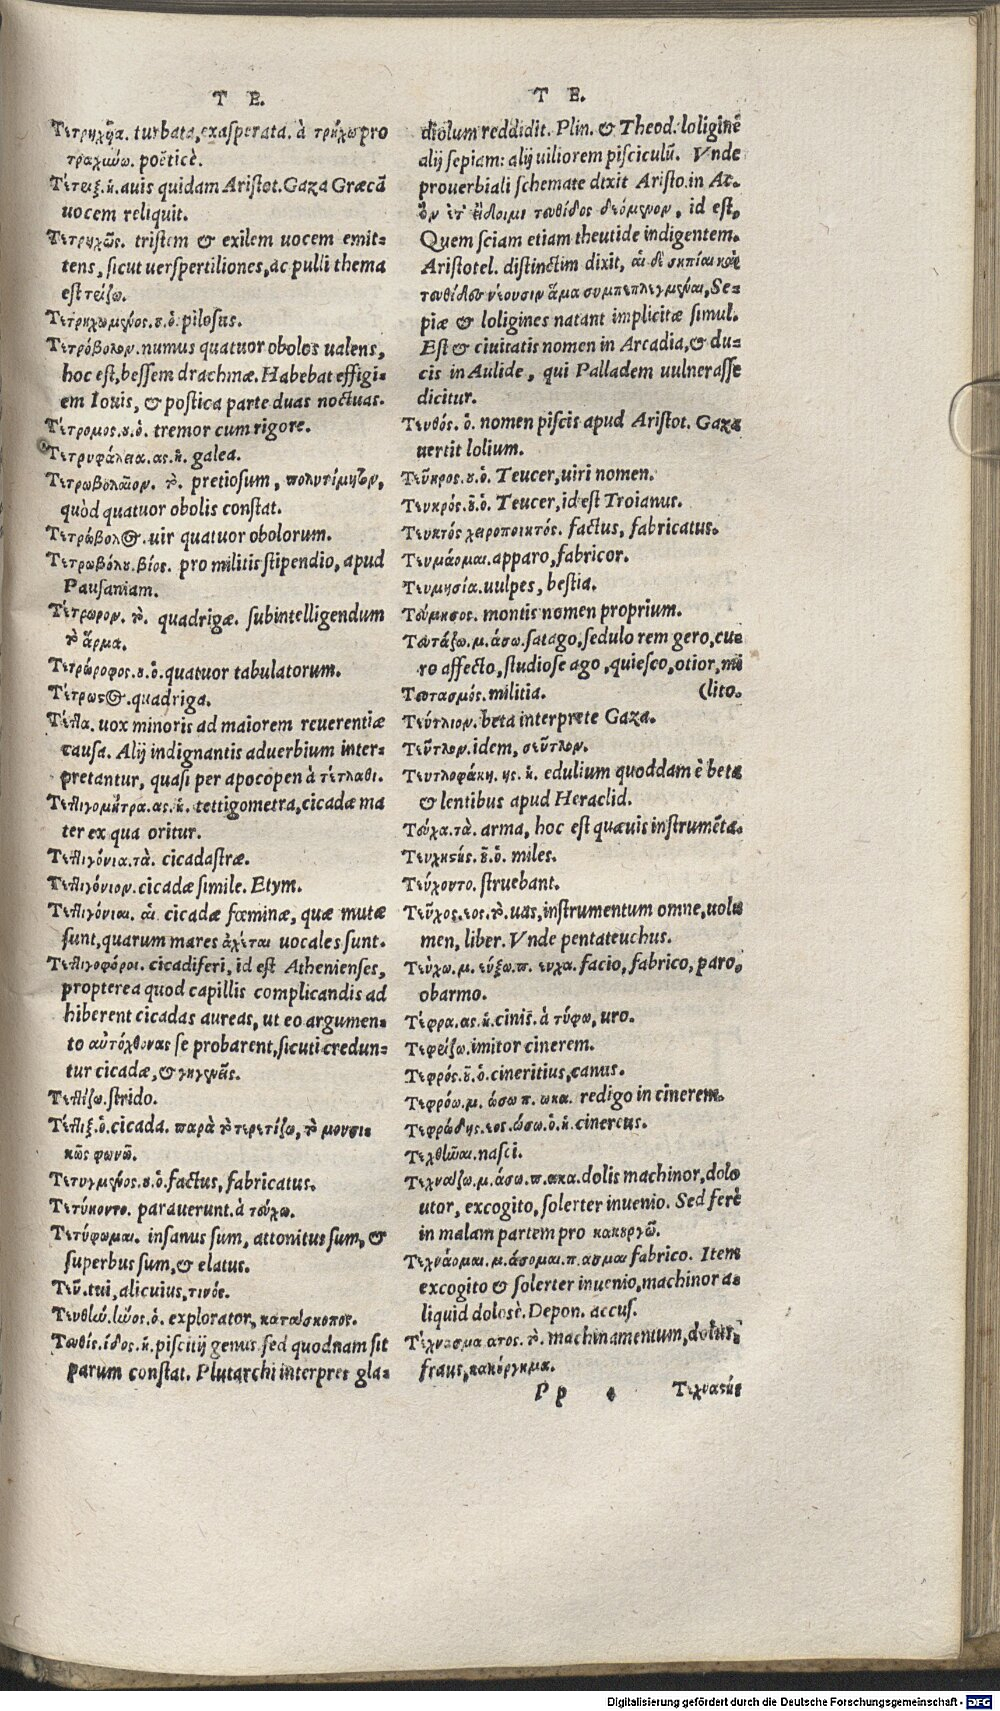 T E.
Τετρηχῆα. turbata, exasperata. à τρήχω pro
τραχιύω. poëticè.
Τέτριξ. ἡ. auis quidam Aristot. Gaza Græcā
uocem reliquit.
Τετρηχῶς. tristem & exilem uocem emit-
tens, sicut uerspertiliones, ac pulli thema
est τρίζω.
Τετρηχωμένος. ου. ὁ. pilosus.
Τετρόβολον. numus quatuor obolos ualens,
hoc est, bessem drachmæ. Habebat effigi-
em Iouis, & postica parte duas noctuas.
Τέτρομος. ου. ὁ. tremor cum rigore.
Τετρυφάλεια. ας. ἡ. galea.
Τετρωβολαῖον. τὸ. pretiosum, πολυτίμητον,
quòd quatuor obolis constat.
Τετρώβολος. uir quatuor obolorum.
Τετρωβόλου. βίος. pro militis stipendio, apud
Pausaniam.
Τέτρωρον. τὸ. quadrigæ. subintelligendum
τὸ ἅρμα.
Τετρώροφος. ου. ὁ. quatuor tabulatorum.
Τέτρωρος. quadriga.
Τέττα. uox minoris ad maiorem reuerentiæ
causa. Alij indignantis aduerbium inter-
pretantur, quasi per apocopen à τέτλαθι.
Τεττιγομήτρα. ας. ἡ. tettigometra, cicadæ ma
ter ex qua oritur.
Τεττιγόνια. τὰ. cicadastræ.
Τεττιγόνιον. cicadæ simile. Etym.
Τεττιγόνιαι. αἱ. cicadæ fœminæ, quæ mutæ
sunt, quarum mares ἀχέται uocales sunt.
Τεττιγοφόροι. cicadiferi, id est Athenienses,
propterea quod capillis complicandis ad
hiberent cicadas aureas, ut eo argumen-
to αὐτόχθονας se probarent, sicuti credun-
tur cicadæ, & γηγενεῖς.
Τεττίζω. strido.
Τέττιξ. ὁ. cicada. παρὰ τὸ τερετίζω, τὸ μουσι-
κῶς φωνῶ.
Τετυγμένος. ου. ὁ. factus, fabricatus.
Τετύκοντο. parauerunt. à τεύχω.
Τετύφωμαι. insanus sum, attonitus sum, &
superbus sum, & elatus.
Τεῦ. tui, alicuius, τινός.
Τευθὼ. ῶος. ὁ. explorator, κατάσκοπος.
Τευθίς. ίδος. ἡ. piscitij genus sed quodnam sit
parum constat. Plutarchi interpres gla-
T E.
diolum reddidit. Plin. & Theod. loliginē
alij sepiam: alij uiliorem pisciculū. Vnde
prouerbiali schemate dixit Aristo. in Ac.
ὃν ἔτ' εἴδοιμι τευθίδος δεόμενον, id est,
Quem sciam etiam theutide indigentem.
Aristotel. distinctim dixit, αἱ δὲ σηπίαι καὶ
τευθίδες νέουσιν ἅμα συμπεπλεγμέναι, Se-
piæ & loligines natant implicitæ simul.
Est & ciuitatis nomen in Arcadia, & du-
cis in Aulide, qui Palladem uulnerasse
dicitur.
Τευθός. ὁ. nomen piscis apud Aristot. Gaza
uertit lolium.
Τεῦκρος. ου. ὁ. Teucer, uiri nomen.
Τευκρός. οῦ. ὁ. Teucer, id est Troianus.
Τευκτός χειροποικτός. factus, fabricatus.
Τευμάομαι. apparo, fabricor.
Τευμησία. uulpes, bestia.
Τευμησος. montis nomen proprium.
Τευτάζω. μ. άσω. satago, sedulo rem gero, cu-
ro affecto, studiose ago, quiesco, otior, mi
Τευτασμός. militia. (lito.
Τεύτλιον. beta interprete Gaza.
Τεῦτλον. idem, σεῦτλον.
Τευτλοφάκη. ης. ἡ. edulium quoddam è beta
& lentibus apud Heraclid.
Τεύχα. τὰ. arma, hoc est quæuis instrumēta.
Τευχητής. οῦ. ὁ. miles.
Τεύχοντο. struebant.
Τεῦχος. εος. τὸ. uas, instrumentum omne, uolu
men, liber. Vnde pentateuchus.
Τεύχω. μ. εύξω. π. ευχα. facio, fabrico, paro,
obarmo.
Τέφρα. ας. ἡ. cinis. à τύφω, uro.
Τεφρίζω. imitor cinerem.
Τεφρός. οῦ. ὁ. cineritius, canus.
Τεφρόω. μ. ώσω π. ωκα. redigo in cinerem.
Τεφρώδης. εος. ώσω. ὁ. ἡ. cinereus.
Τεχθῶαι. nasci.
Τεχνάζω. μ. άσω. π. ακα. dolis machinor, dolo
utor, excogito, solerter inuenio. Sed ferè
in malam partem pro κακουργῶ.
Τεχνάομαι. μ. άσομαι. π. ασμαι fabrico. Item
excogito & solerter inuenio, machinor a-
liquid dolosè. Depon. accus.
Τέχνασμα ατος. τὸ. machinamentum, dolus,
fraus, κακούργημα.
P p 4 Τεχναστὴς
Digitalisierung gefördert durch die Deutsche Forschungsgemeinschaft - DFG